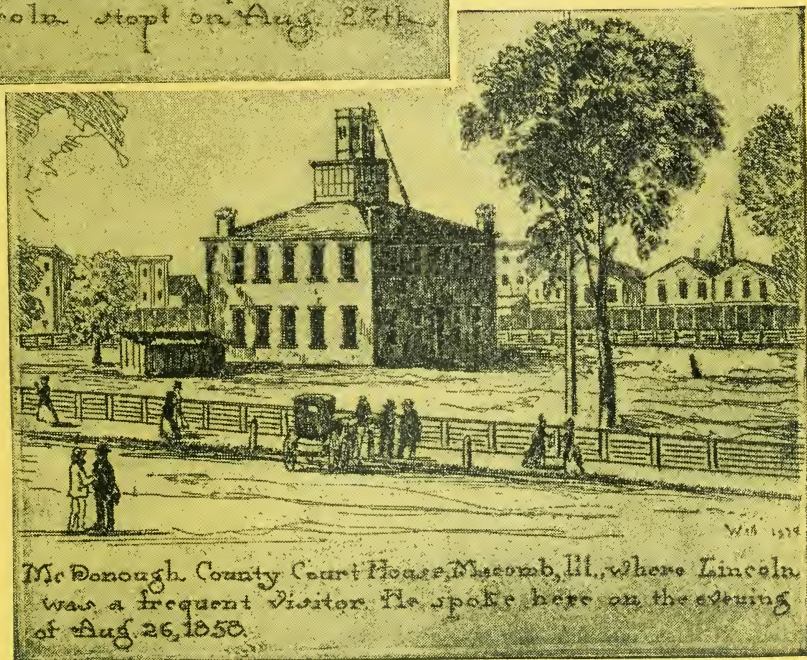 coln stopt on Aug. 27th.
McDonough County Court House, Macomb, Ill., where Lincoln
was a frequent visitor. He spoke here on the evening
of Aug. 26, 1858.